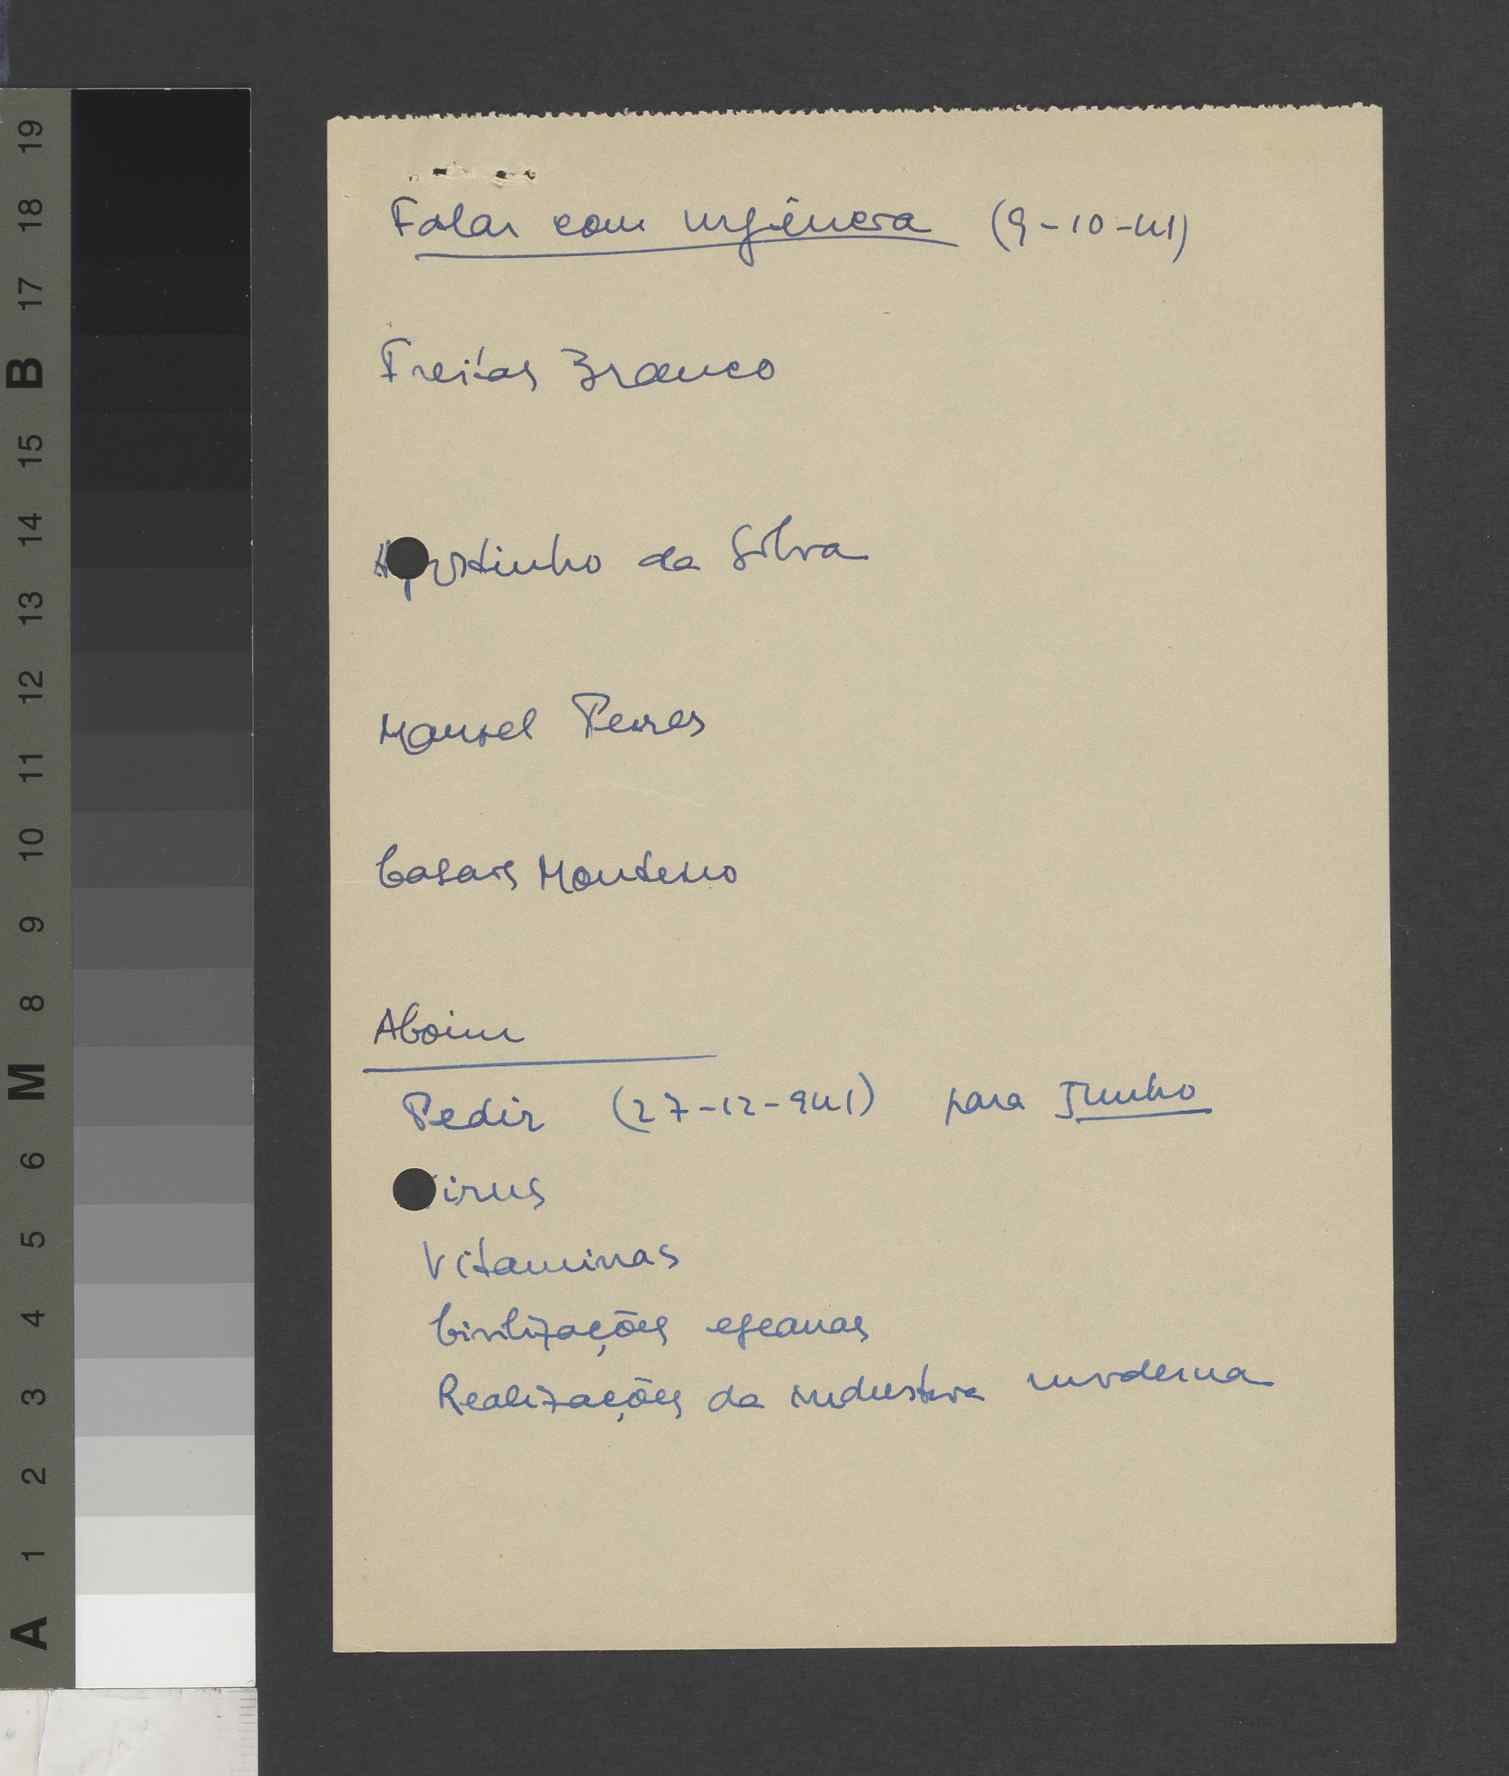 Falar com urgência (9-10-41)
Freitas Branco
Agostinho da Silva
Manuel Peres
Casais Monteiro
Aboim
Pedir (27-12-941) para Junho
Virus
Vitaminas
Civilizações egeanas
Realizações da industria moderna
19
18
17
B
15
14
13
12
11
10
9
8
M
6
5
4
3
2
1
A